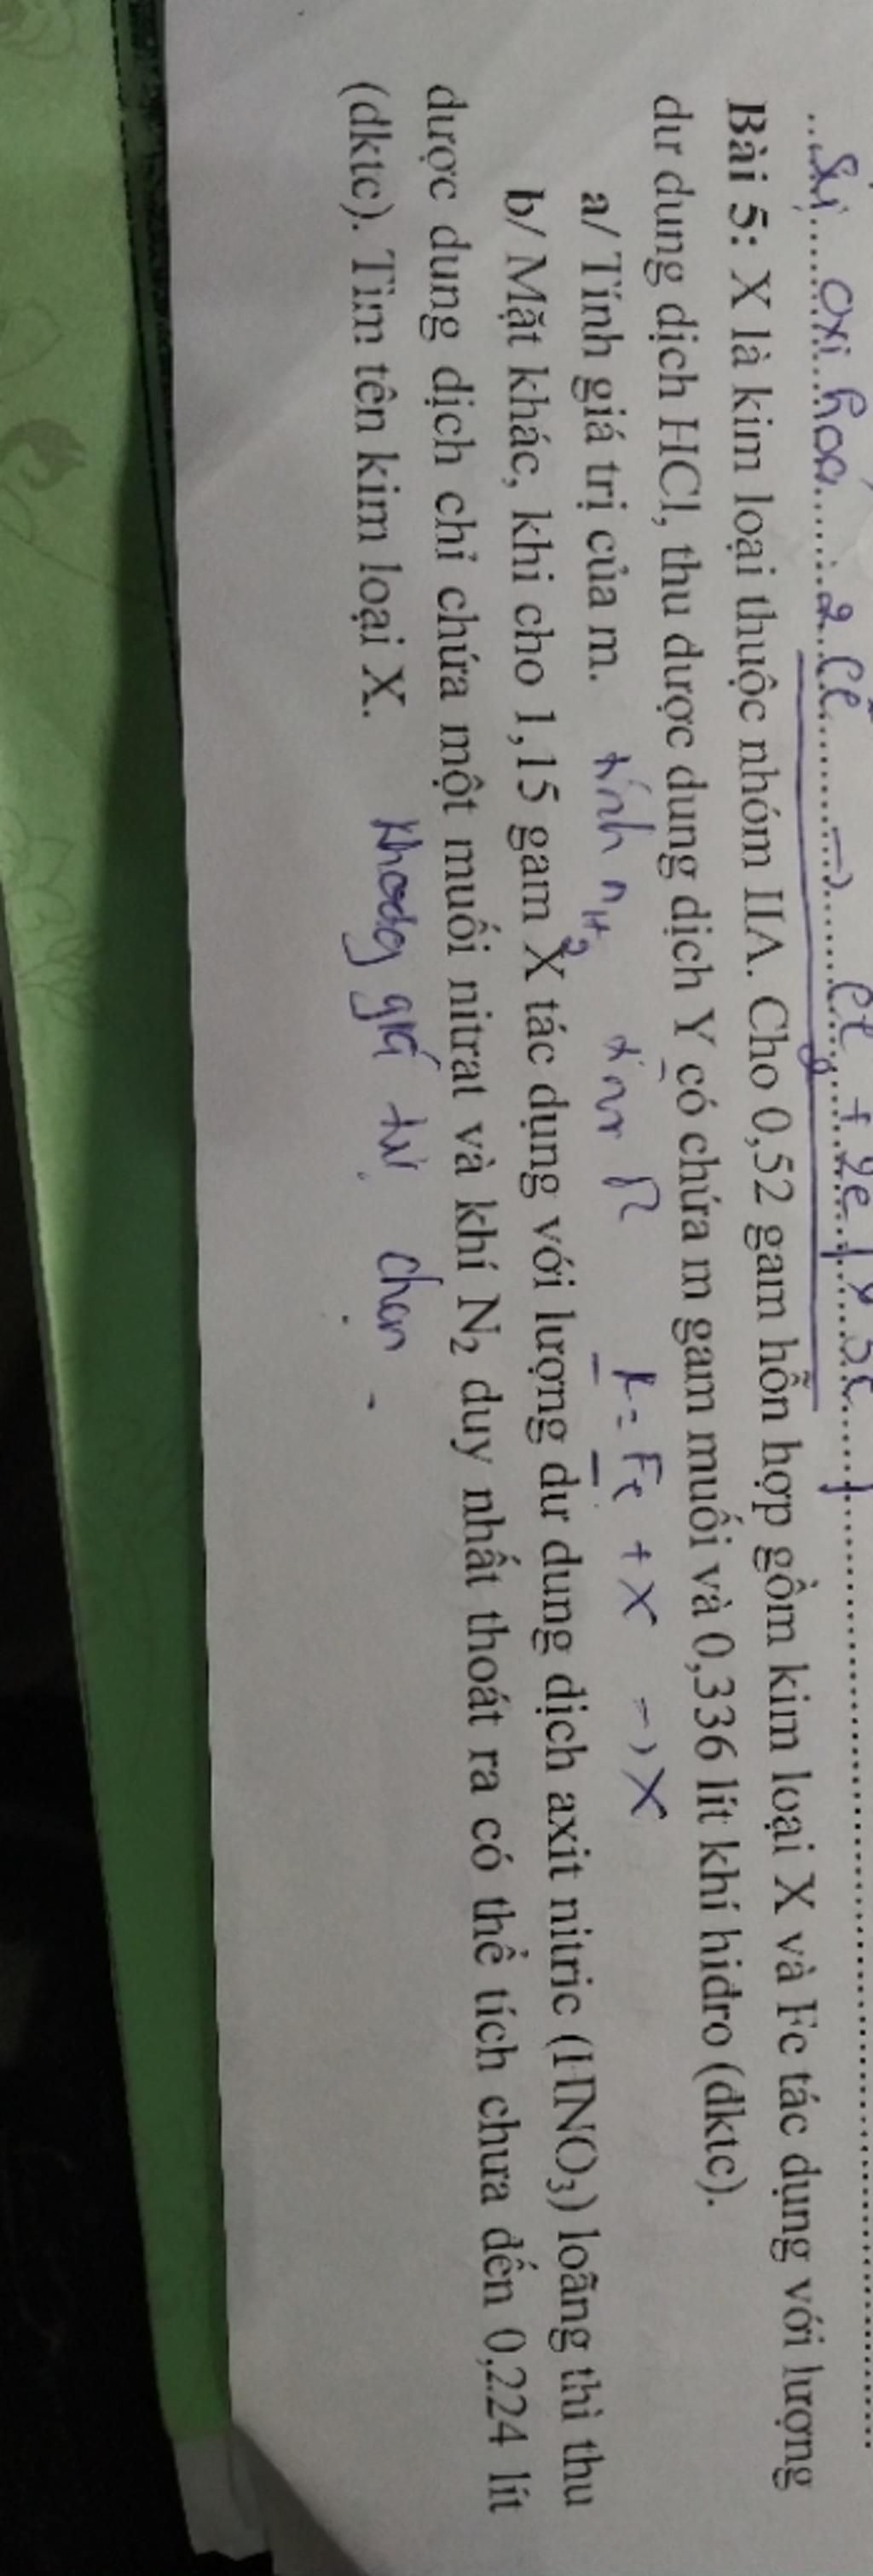 ...Sự...oxi..hoá.......2..Cl.........→.........Cl...+..2e..|
Bài 5: X là kim loại thuộc nhóm IIA. Cho 0,52 gam hỗn hợp gồm kim loại X và Fe tác dụng với lượng
dư dung dịch HCl, thu được dung dịch Y có chứa m gam muối và 0,336 lít khí hiđro (đktc).
a/ Tính giá trị của m. tính nH2 R = Fe + X → X
b/ Mặt khác, khi cho 1,15 gam X tác dụng với lượng dư dung dịch axit nitric (HNO3) loãng thì thu
được dung dịch chỉ chứa một muối nitrat và khí N2 duy nhất thoát ra có thể tích chưa đến 0,224 lít
(đktc). Tìm tên kim loại X. khoảng giá trị chọn